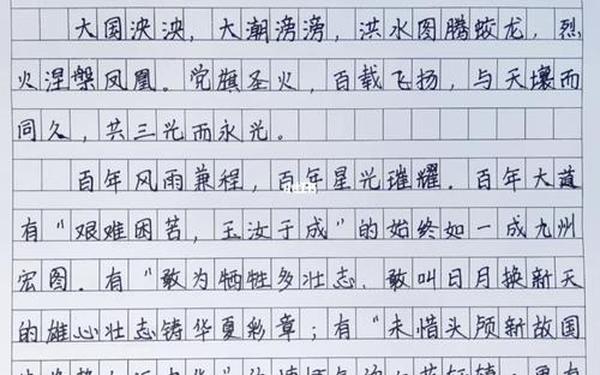 大国泱泱，大潮滂滂，洪水图腾蛟龙，烈
火涅槃凤凰。党旗圣火，百载飞扬，与天壤而
同久，共三光而永光。
百年风雨兼程，百年星光璀耀。百年大道
有“艰难困苦，玉汝于成”的始终如一成九州
宏图。有“敢为牺牲多壮志，敢叫日月换新天
的雄心壮志铸华夏彩章；有“未惜头颅新故国